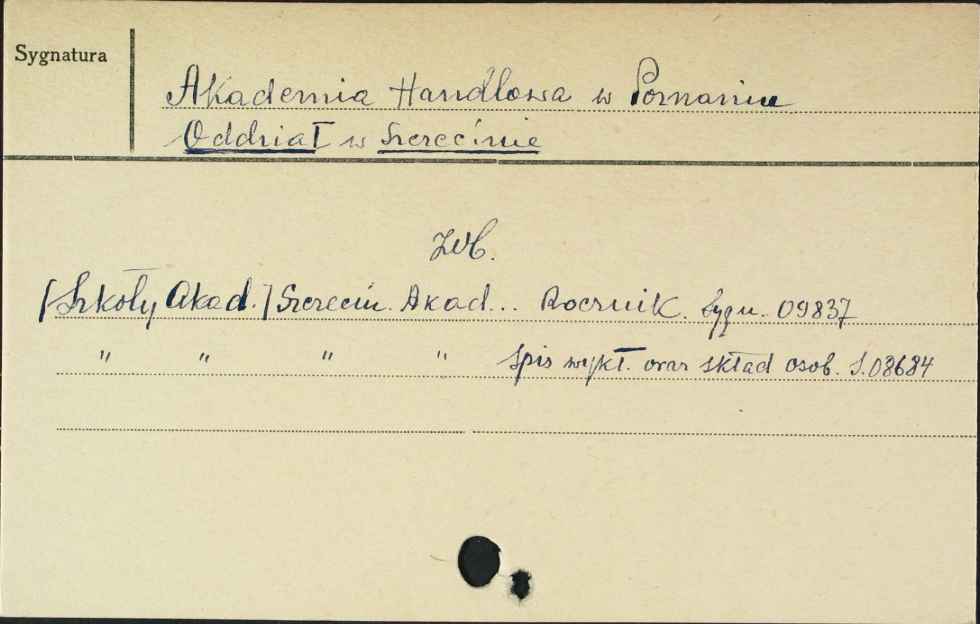 Sygnatura
Akademia Handlowa w Poznaniu
Oddział w Szczecinie
Zob.
[Szkoły Akad.] Szczecin. Akad... Rocznik. Sygn. 09837
" " " " Spis wykł. oraz skład osob. S. 08684